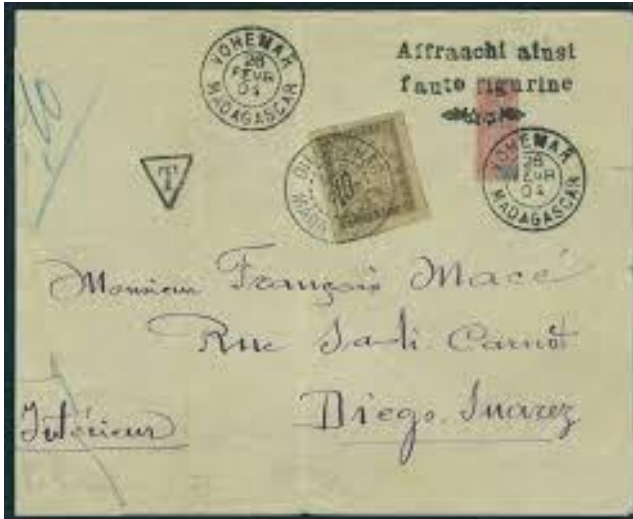 VOHEMAR
28
FEVR
04
MADAGASCAR
Affranchi ainsi
faute figurine
VOHEMAR
28
FEVR
04
MADAGASCAR
T
10
Monsieur François Macé
Rue Sadi Carnot
Diego. Suarez
Intérieur